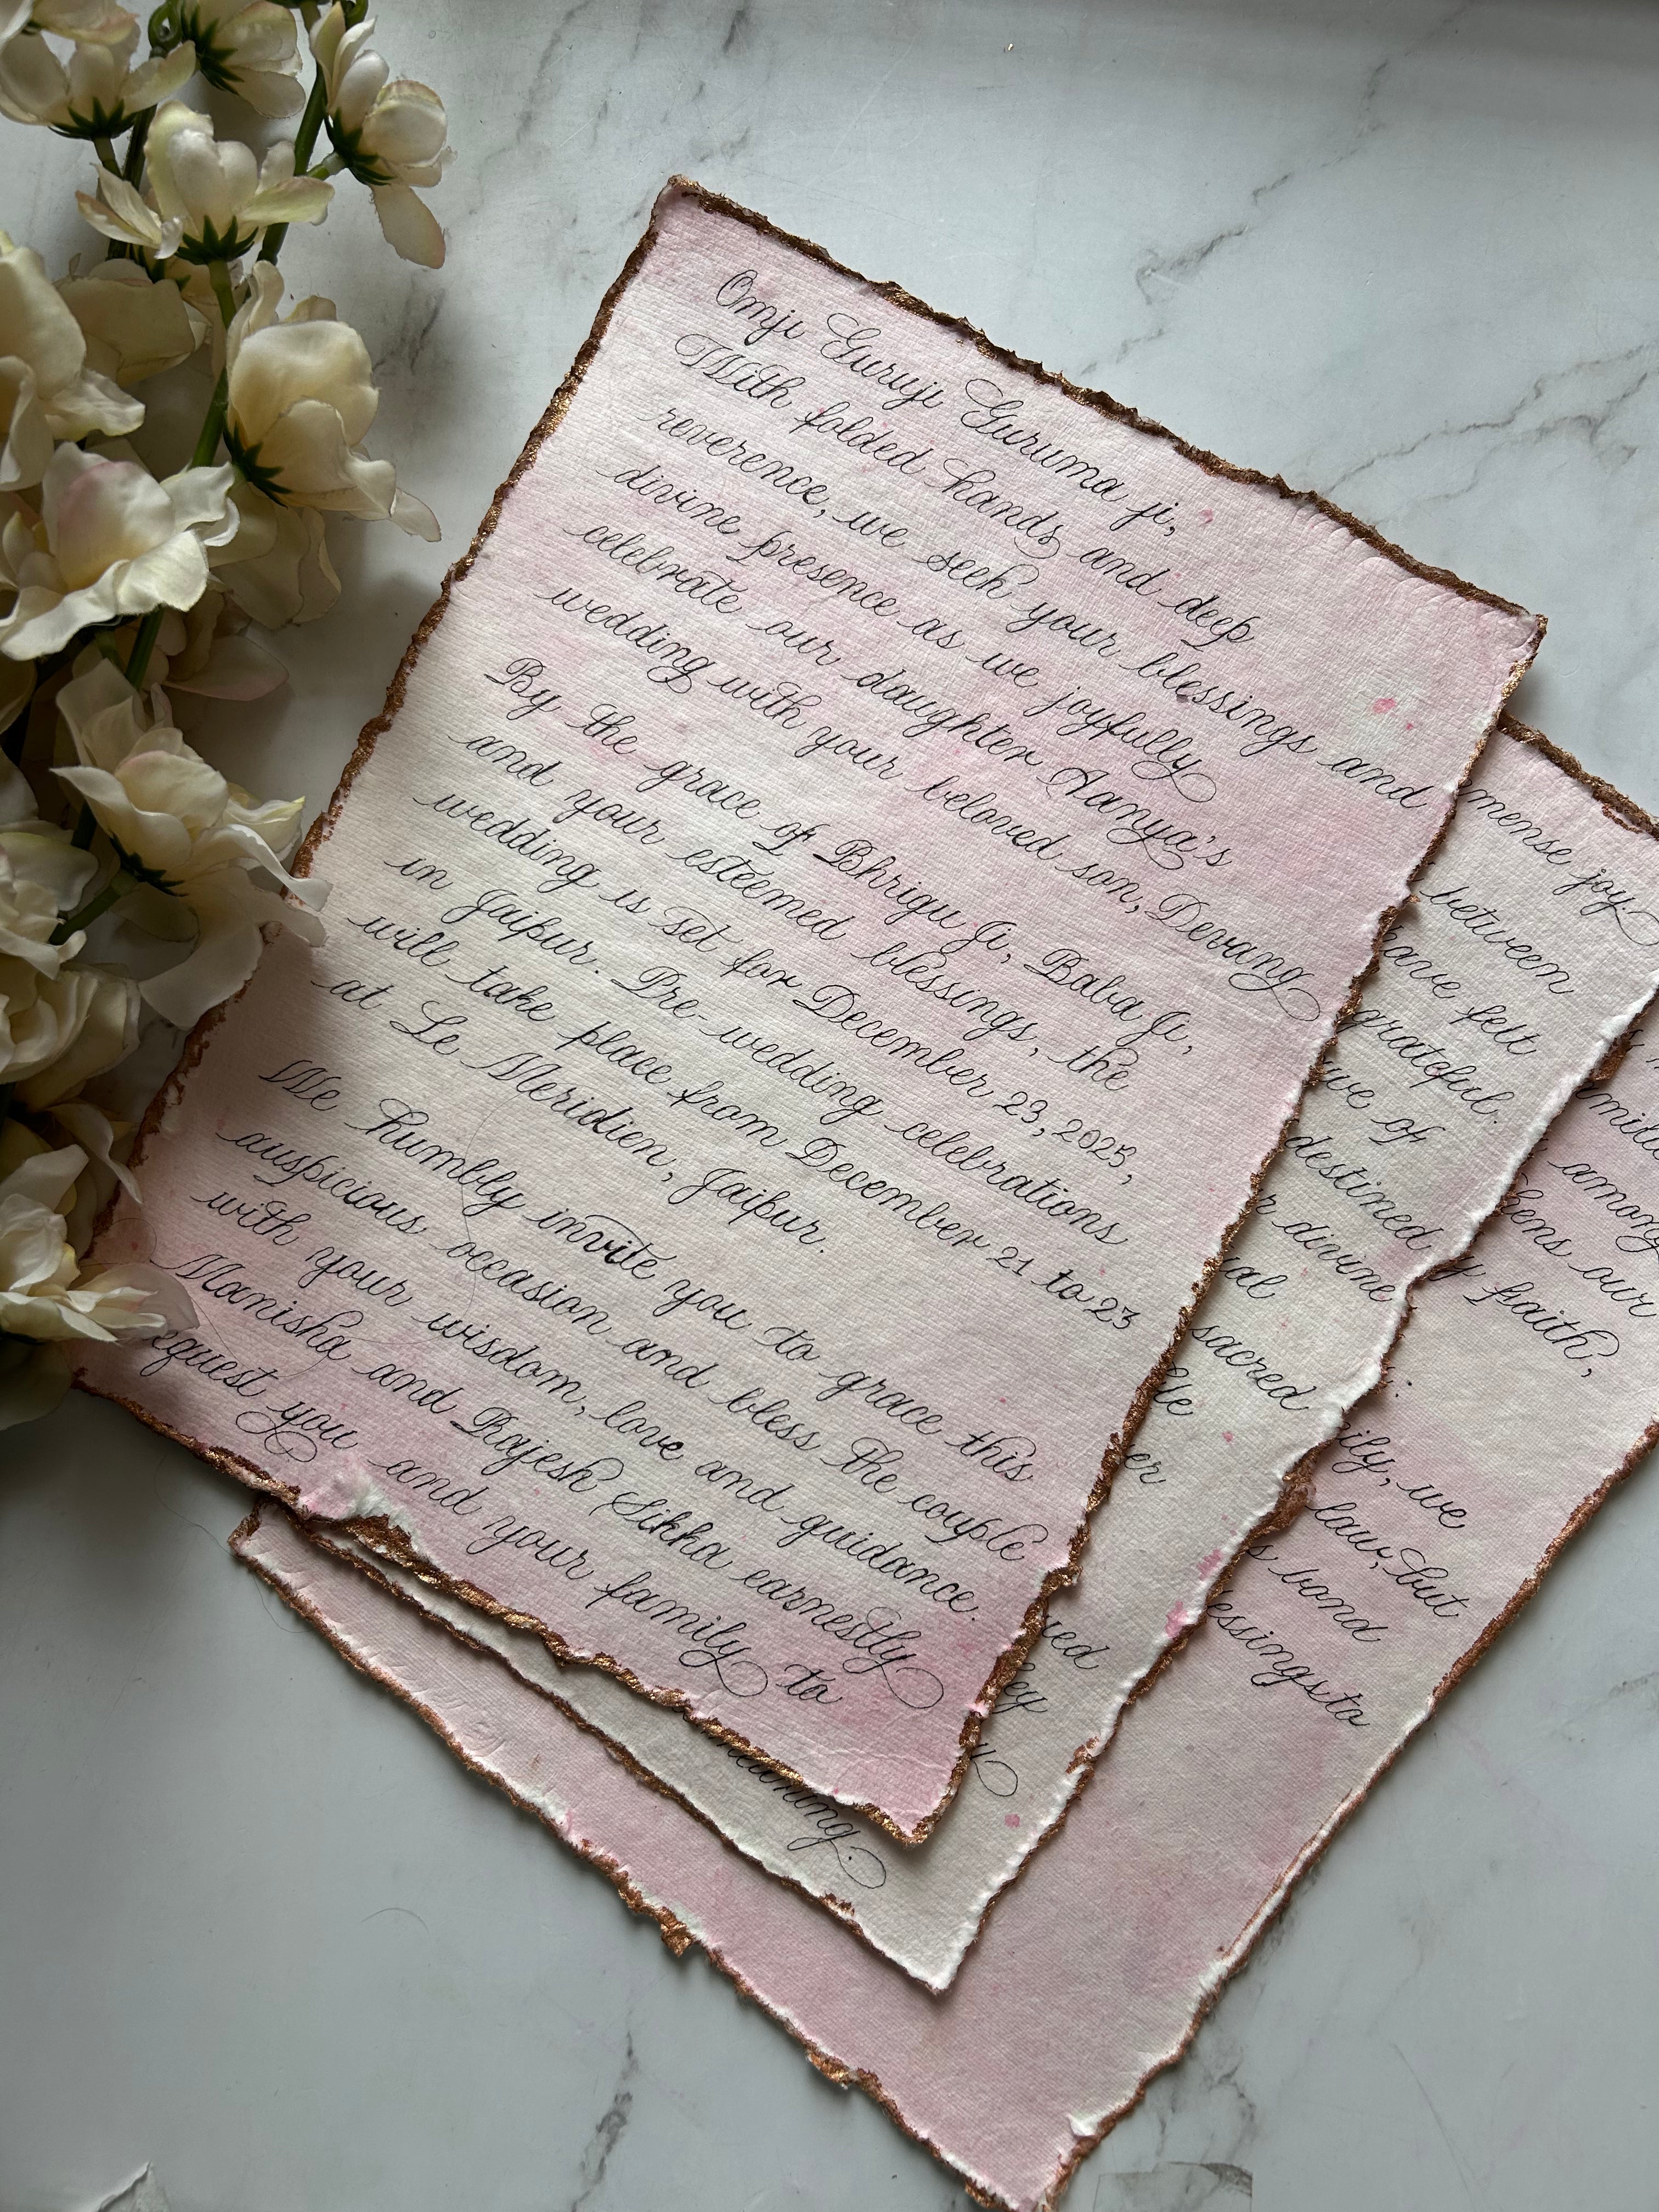 Omji Guruji Guruma ji,
With folded hands and deep
reverence, we seek your blessings and
divine presence as we joyfully
celebrate our daughter Hanya's
wedding with your beloved son, Devang
By the grace of Bhrigu Ji, Baba Ji,
and your esteemed blessings, the
wedding is set for December 23, 2025,
in Jaipur. Pre-wedding celebrations
will take place from December 21 to 23
at Le Meridien, Jaipur.
We humbly invite you to grace this
auspicious occasion and bless the couple
with your wisdom, love and guidance.
Manisha and Rajesh Sikka earnestly
equest you and your family to
mense joy.
between
have felt
grateful.
we of
destined
r divine
ual
sacred
le
er
ued
ey
y
meaning.
mila
among
hens our
y faith,
ily, we
law, but
s bond
essings to